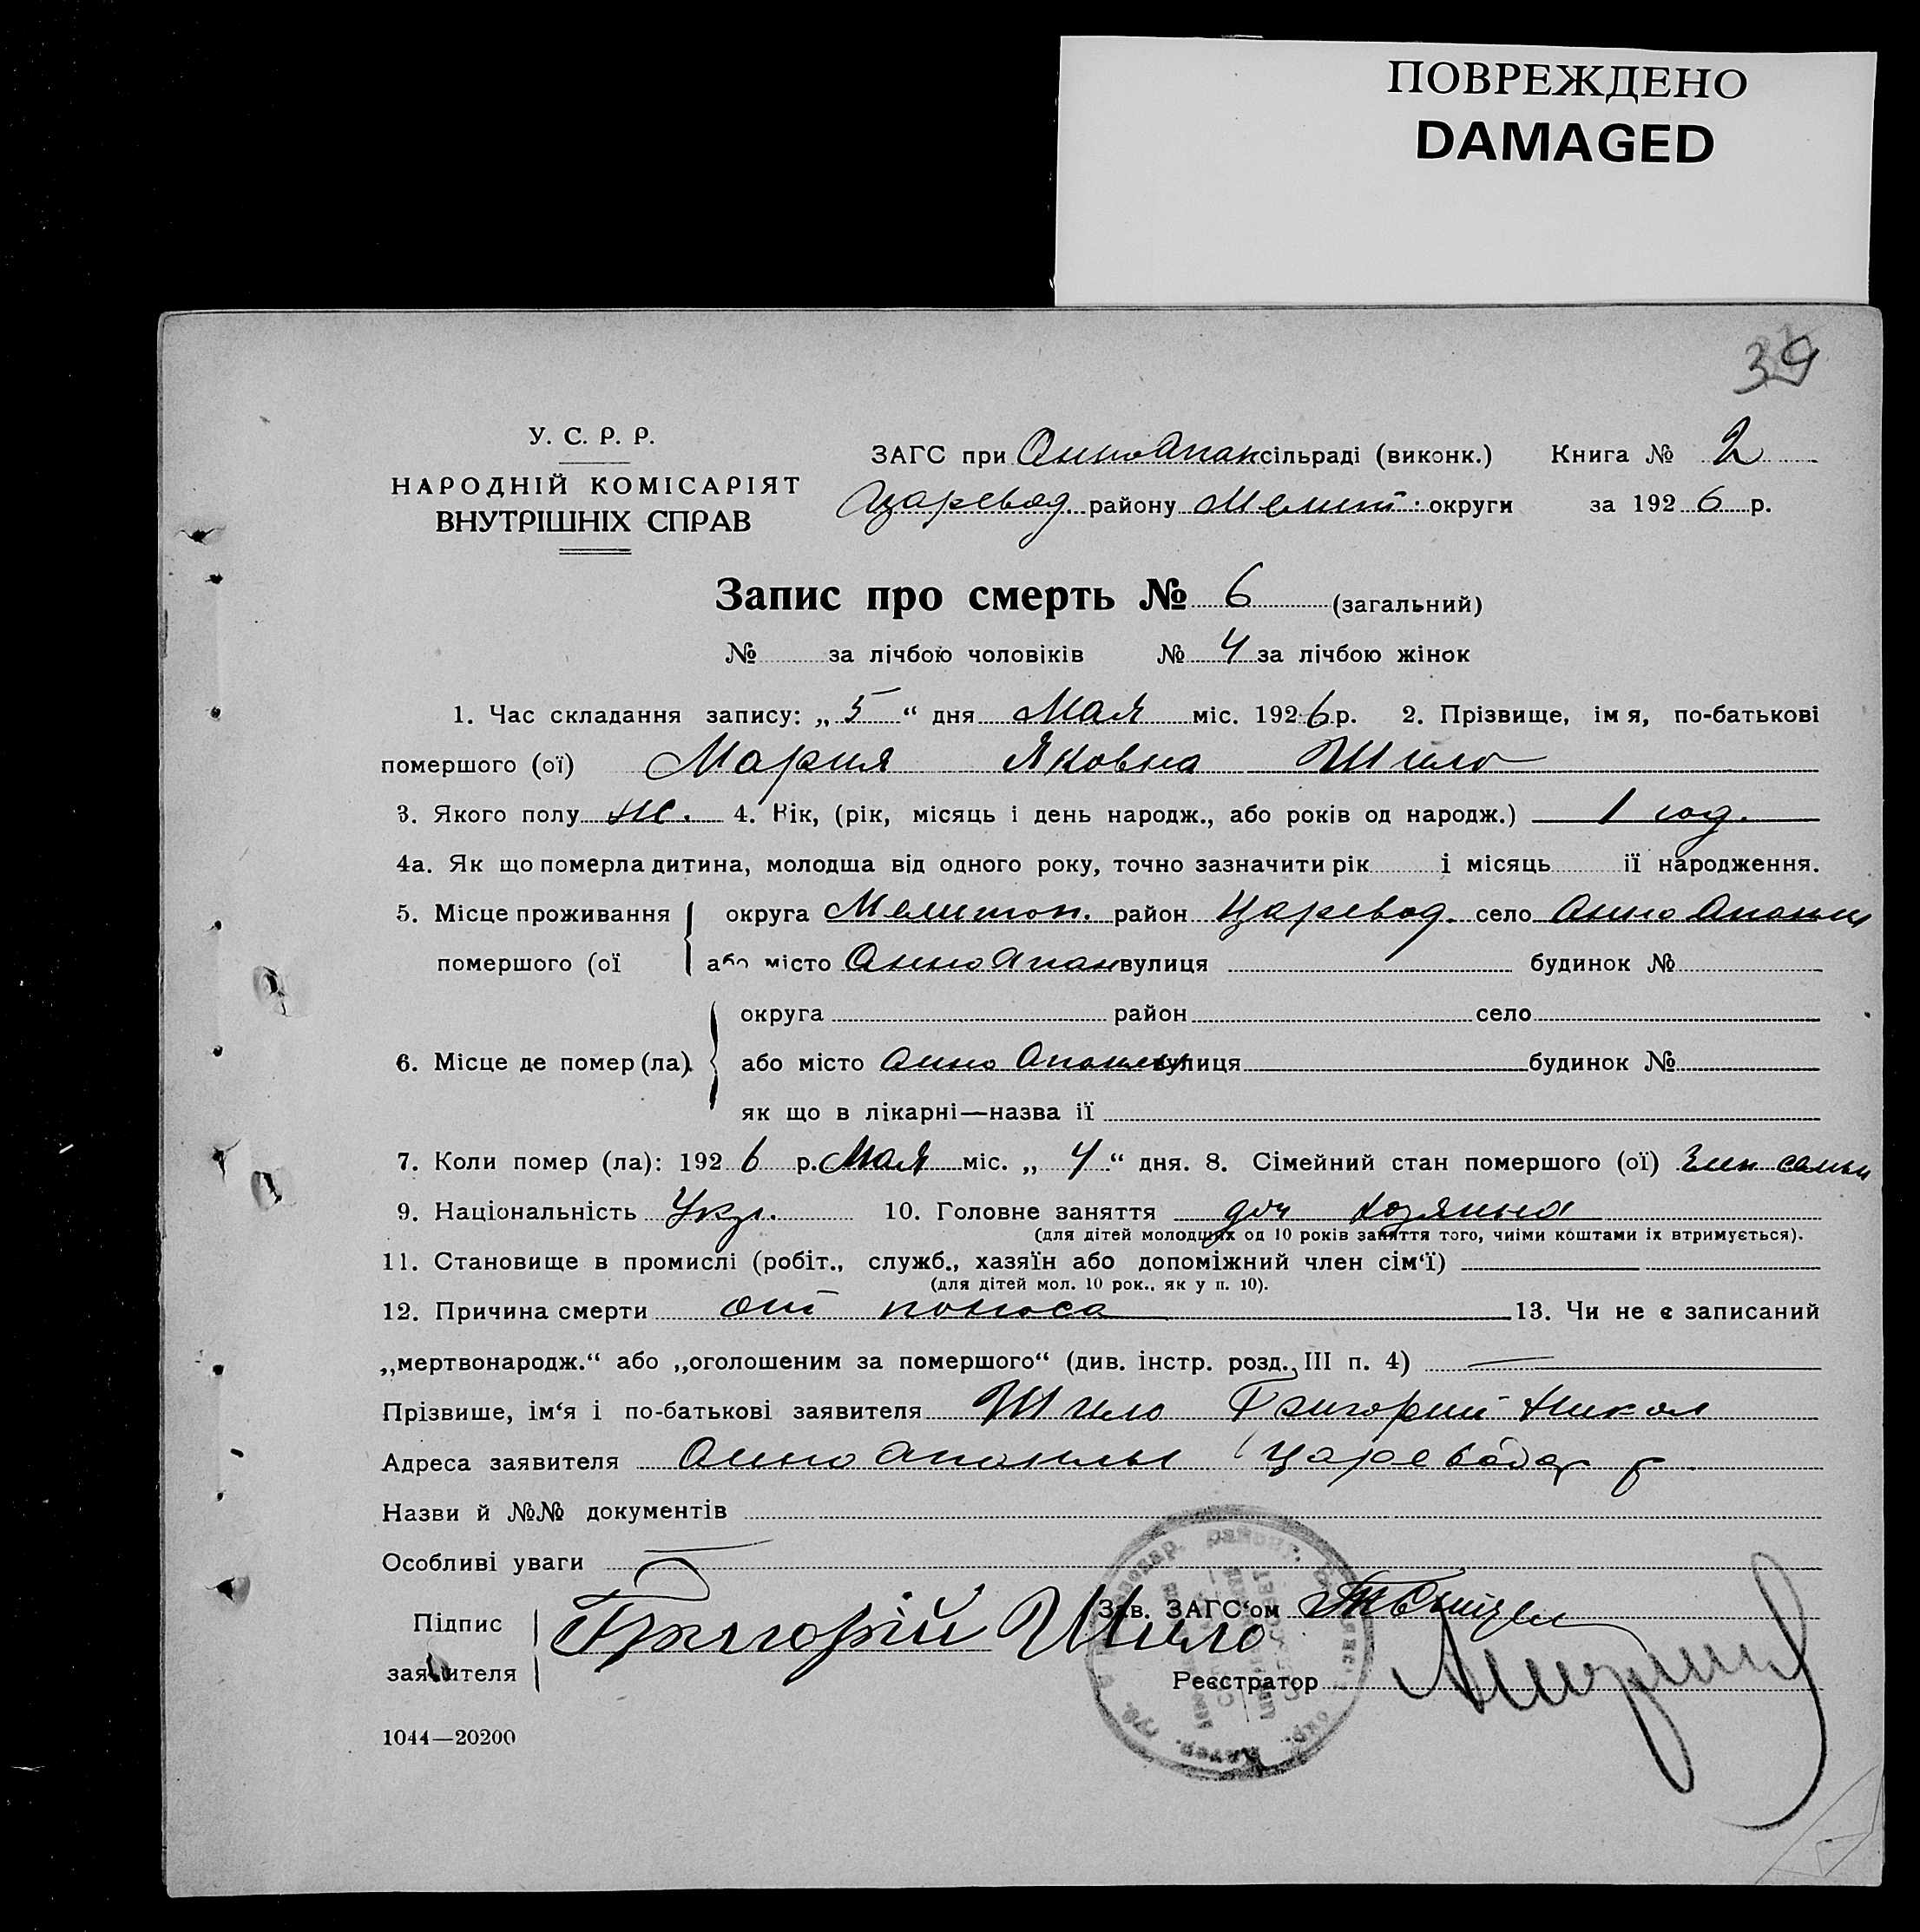 ПОВРЕЖДЕНО
DAMAGED
39
У. С. Р. Р.
НАРОДНІЙ КОМІСАРІЯТ
ВНУТРІШНІХ СПРАВ
ЗАГС при АнноОпан сільраді (виконк.) Книга № 2
Царевод. району Мелит. округи за 1926 р.
Запис про смерть № 6 (загальний)
№ за лічбою чоловіків № 4 за лічбою жінок
1. Час складання запису: „5“ дня Мая міс. 1926 р. 2. Прізвище, імя, по-батькові
помершого (ої) Мария Яковна Шило
3. Якого полу ж. 4. Вік, (рік, місяць і день народж., або років од народж.) 1 год.
4а. Як що померла дитина, молодша від одного року, точно зазначити рік і місяць ії народження.
5. Місце проживання округа Мелитоп. район Царевод. село Анно Опанлы
помершого (ої або місто Анно Опан вулиця будинок №
округа район село
6. Місце де помер (ла) або місто Анно Опанлы вулиця будинок №
як що в лікарні—назва ії
7. Коли помер (ла): 1926 р. Мая міс. „4“ дня. 8. Сімейний стан помершого (ої) член семьи
9. Національність Укр. 10. Головне заняття доч хозяина
(для дітей молодших од 10 років заняття того, чиїми коштами їх втримується).
11. Становище в промислі (робіт., служб., хазяїн або допоміжний член сім‘ї)
(для дітей мол. 10 рок., як у п. 10).
12. Причина смерти от поноса 13. Чи не є записаний
„мертвонародж.“ або „оголошеним за помершого“ (див. інстр. розд. III п. 4) —
Прізвише, ім‘я і по-батькові заявителя Шило Григорий Никол
Адреса заявителя Анно Опанлы Царевод р
Назви й №№ документів
Особливі уваги —
Підпис
заявителя Григорій Шило
Зав. ЗАГС‘ом
Реєстратор
1044—20200